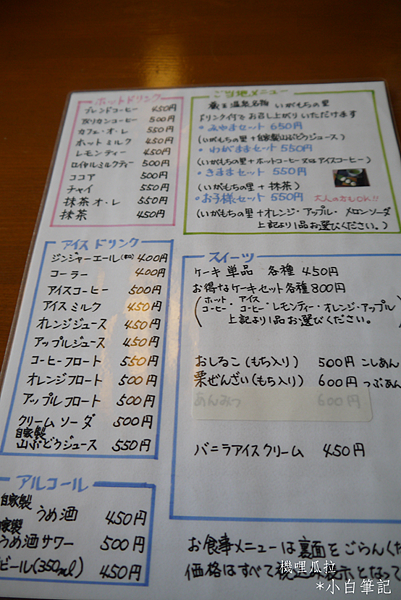 ホットドリンク
ブレンドコーヒー 450円
アメリカンコーヒー 500円
カフェ・オ・レ 550円
ホットミルク 450円
レモンティー 450円
ロイヤルミルクティー 500円
ココア 500円
チャイ 550円
抹茶オ・レ 550円
抹茶 450円
アイスドリンク
ジンジャーエール 400円
コーラー 400円
アイスコーヒー 500円
アイスミルク 450円
オレンジジュース 450円
アップルジュース 450円
コーヒーフロート 550円
オレンジフロート 500円
アップルフロート 500円
クリームソーダ 500円
自家製
山ぶどうジュース 550円
アルコール
自家製
うめ酒 450円
自家製
うめ酒サワー 500円
ビール(350ml) 450円
ご当地メニュー
蔵王温泉名物 いがもちの里
ドリンク付でお召し上がりいただけます
・みやまセット 650円
(いがもちの里+自家製山ぶどうジュース)
・わがままセット 550円
(いがもちの里+ホットコーヒー又はアイスコーヒー)
・きままセット 550円
(いがもちの里+抹茶)
・お子様セット 550円 大人の方もOK!!
(いがもちの里+オレンジ・アップル・メロンソーダ
上記より1品お選びください。)
スイーツ
ケーキ単品 各種 450円
お得なケーキセット各種800円
(ホットコーヒー・アイスコーヒー・レモンティー・オレンジ・アップル
上記より1品お選びください。)
おしろこ(もち入り) 500円 こしあん
栗ぜんざい(もち入り) 600円 つぶあん
あんみつ 600円
バニラアイスクリーム 450円
お食事メニューは裏面をごらんくだ
価格はすべて税込み表示となって
機哩瓜拉
*小白筆記